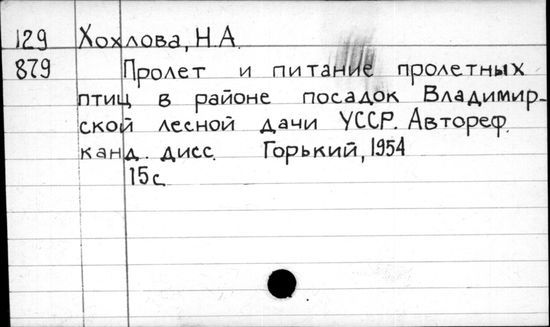 129 Хохлова, Н.А.
879 Пролет и питание пролетных
птиц в районе посадок Владимир-
ской лесной дачи УССР. Автореф.
канд. дисс. Горький, 1954
15с